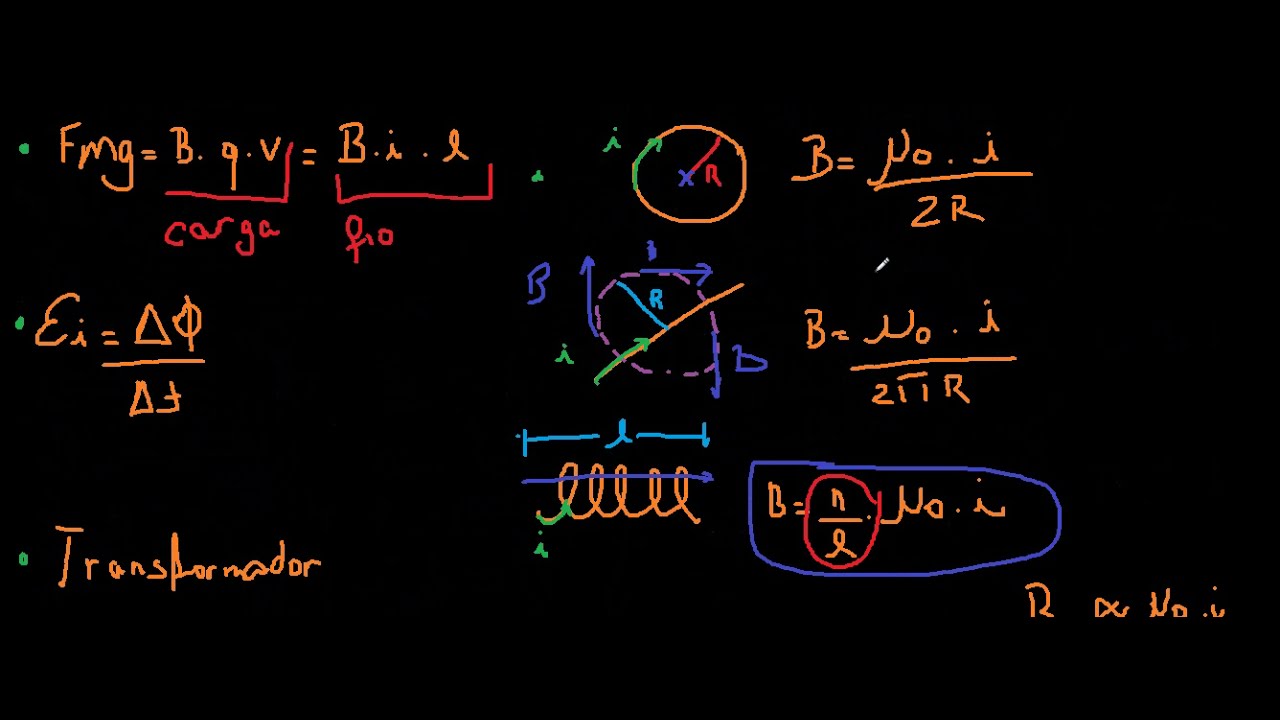 Fmg = B. q. v = B. i. l
carga
fio
εi = ΔΦ
Δt
Transformador
i
R
B = μ0 . i
2R
B
B
R
i
B
B = μ0 . i
2πR
l
i
B = n/l . μ0 . i
B ∝ μ0 . i